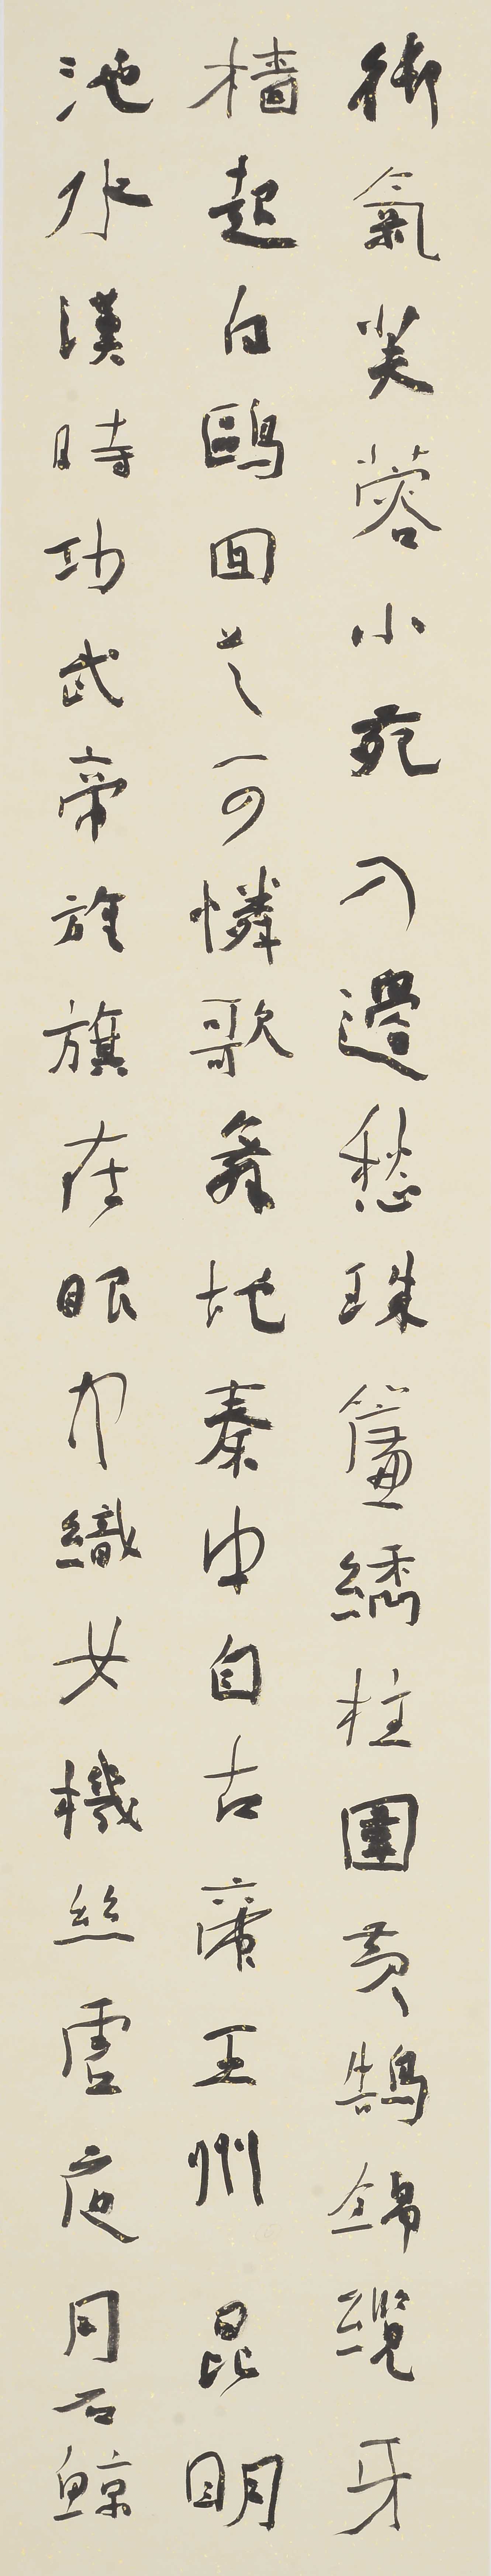 御氣芙蓉小苑入邊愁珠簾繡柱圍黃鵠錦纜牙
檣起白鷗回首可憐歌舞地秦中自古帝王州昆明
池水漢時功武帝旌旗在眼中織女機絲虛夜月石鯨